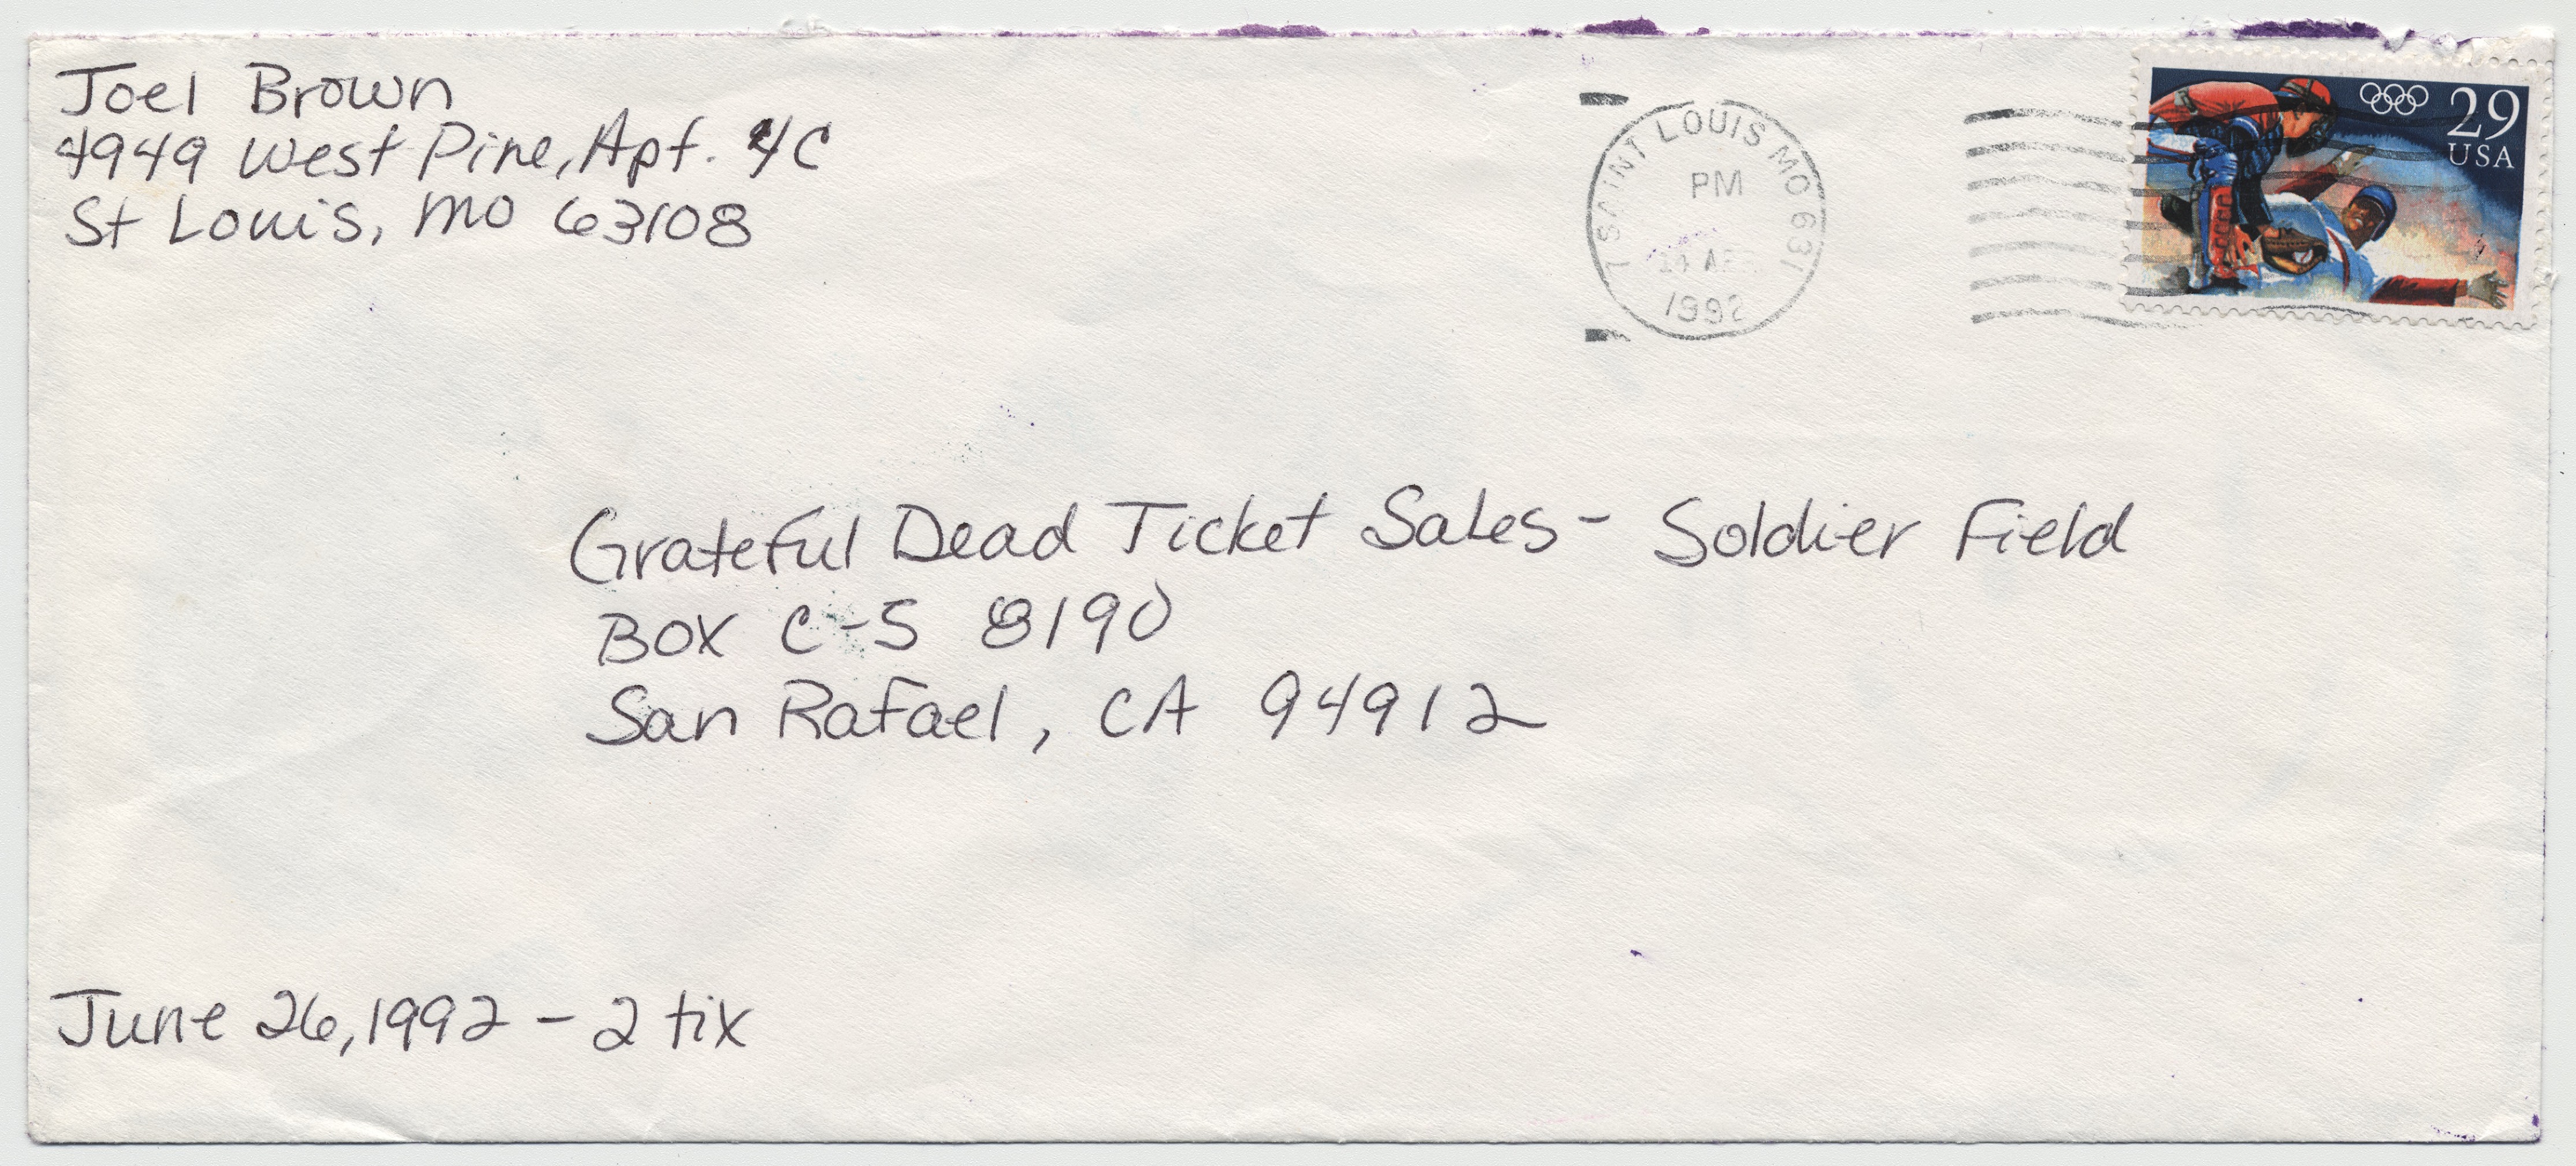 Joel Brown
4949 West Pine, Apt. 4C
St Louis, MO 63108
SAINT LOUIS MO 631
PM
APR
1992
29
USA
Grateful Dead Ticket Sales - Soldier Field
BOX C-S 8190
San Rafael, CA 94912
June 26, 1992 - 2 tix